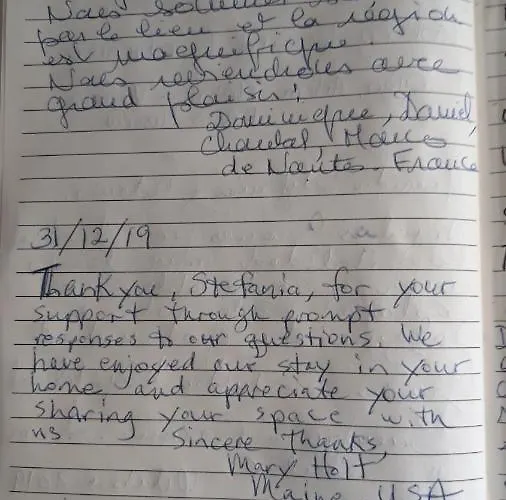 Nous
par le lieu et la région
est magnifique.
Nous reviendrons avec
grand plaisir!
Dominique, Daniel,
Chantal,
de Nantes, France
31/12/19
Thank you, Stefania, for your
support through prompt
responses to our questions. We
have enjoyed our stay in your
home and appreciate your
sharing your space with
us. Sincere thanks,
Mary Holt
Maine, USA